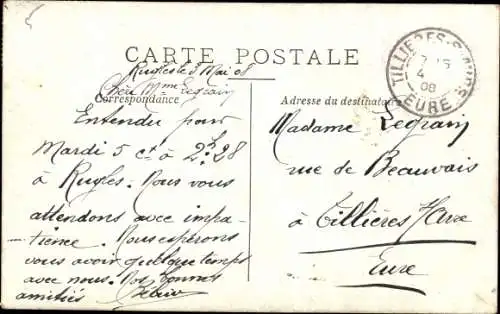 CARTE POSTALE
Rugles le 3 Mai 08
Chère Mme Legrain
Correspondance
Entendu pour
Mardi 5 ct à 2h 28
à Rugles. Nous vous
attendons avec impa-
tience. Nous espérons
vous avoir quelque temps
avec nous. Nos bonnes
amitiés
Adresse du destinataire
Madame Legrain
rue de Beauvais
à Tillières s/Avre
Eure
TILLIERES-S-AVRE
4
08
EURE